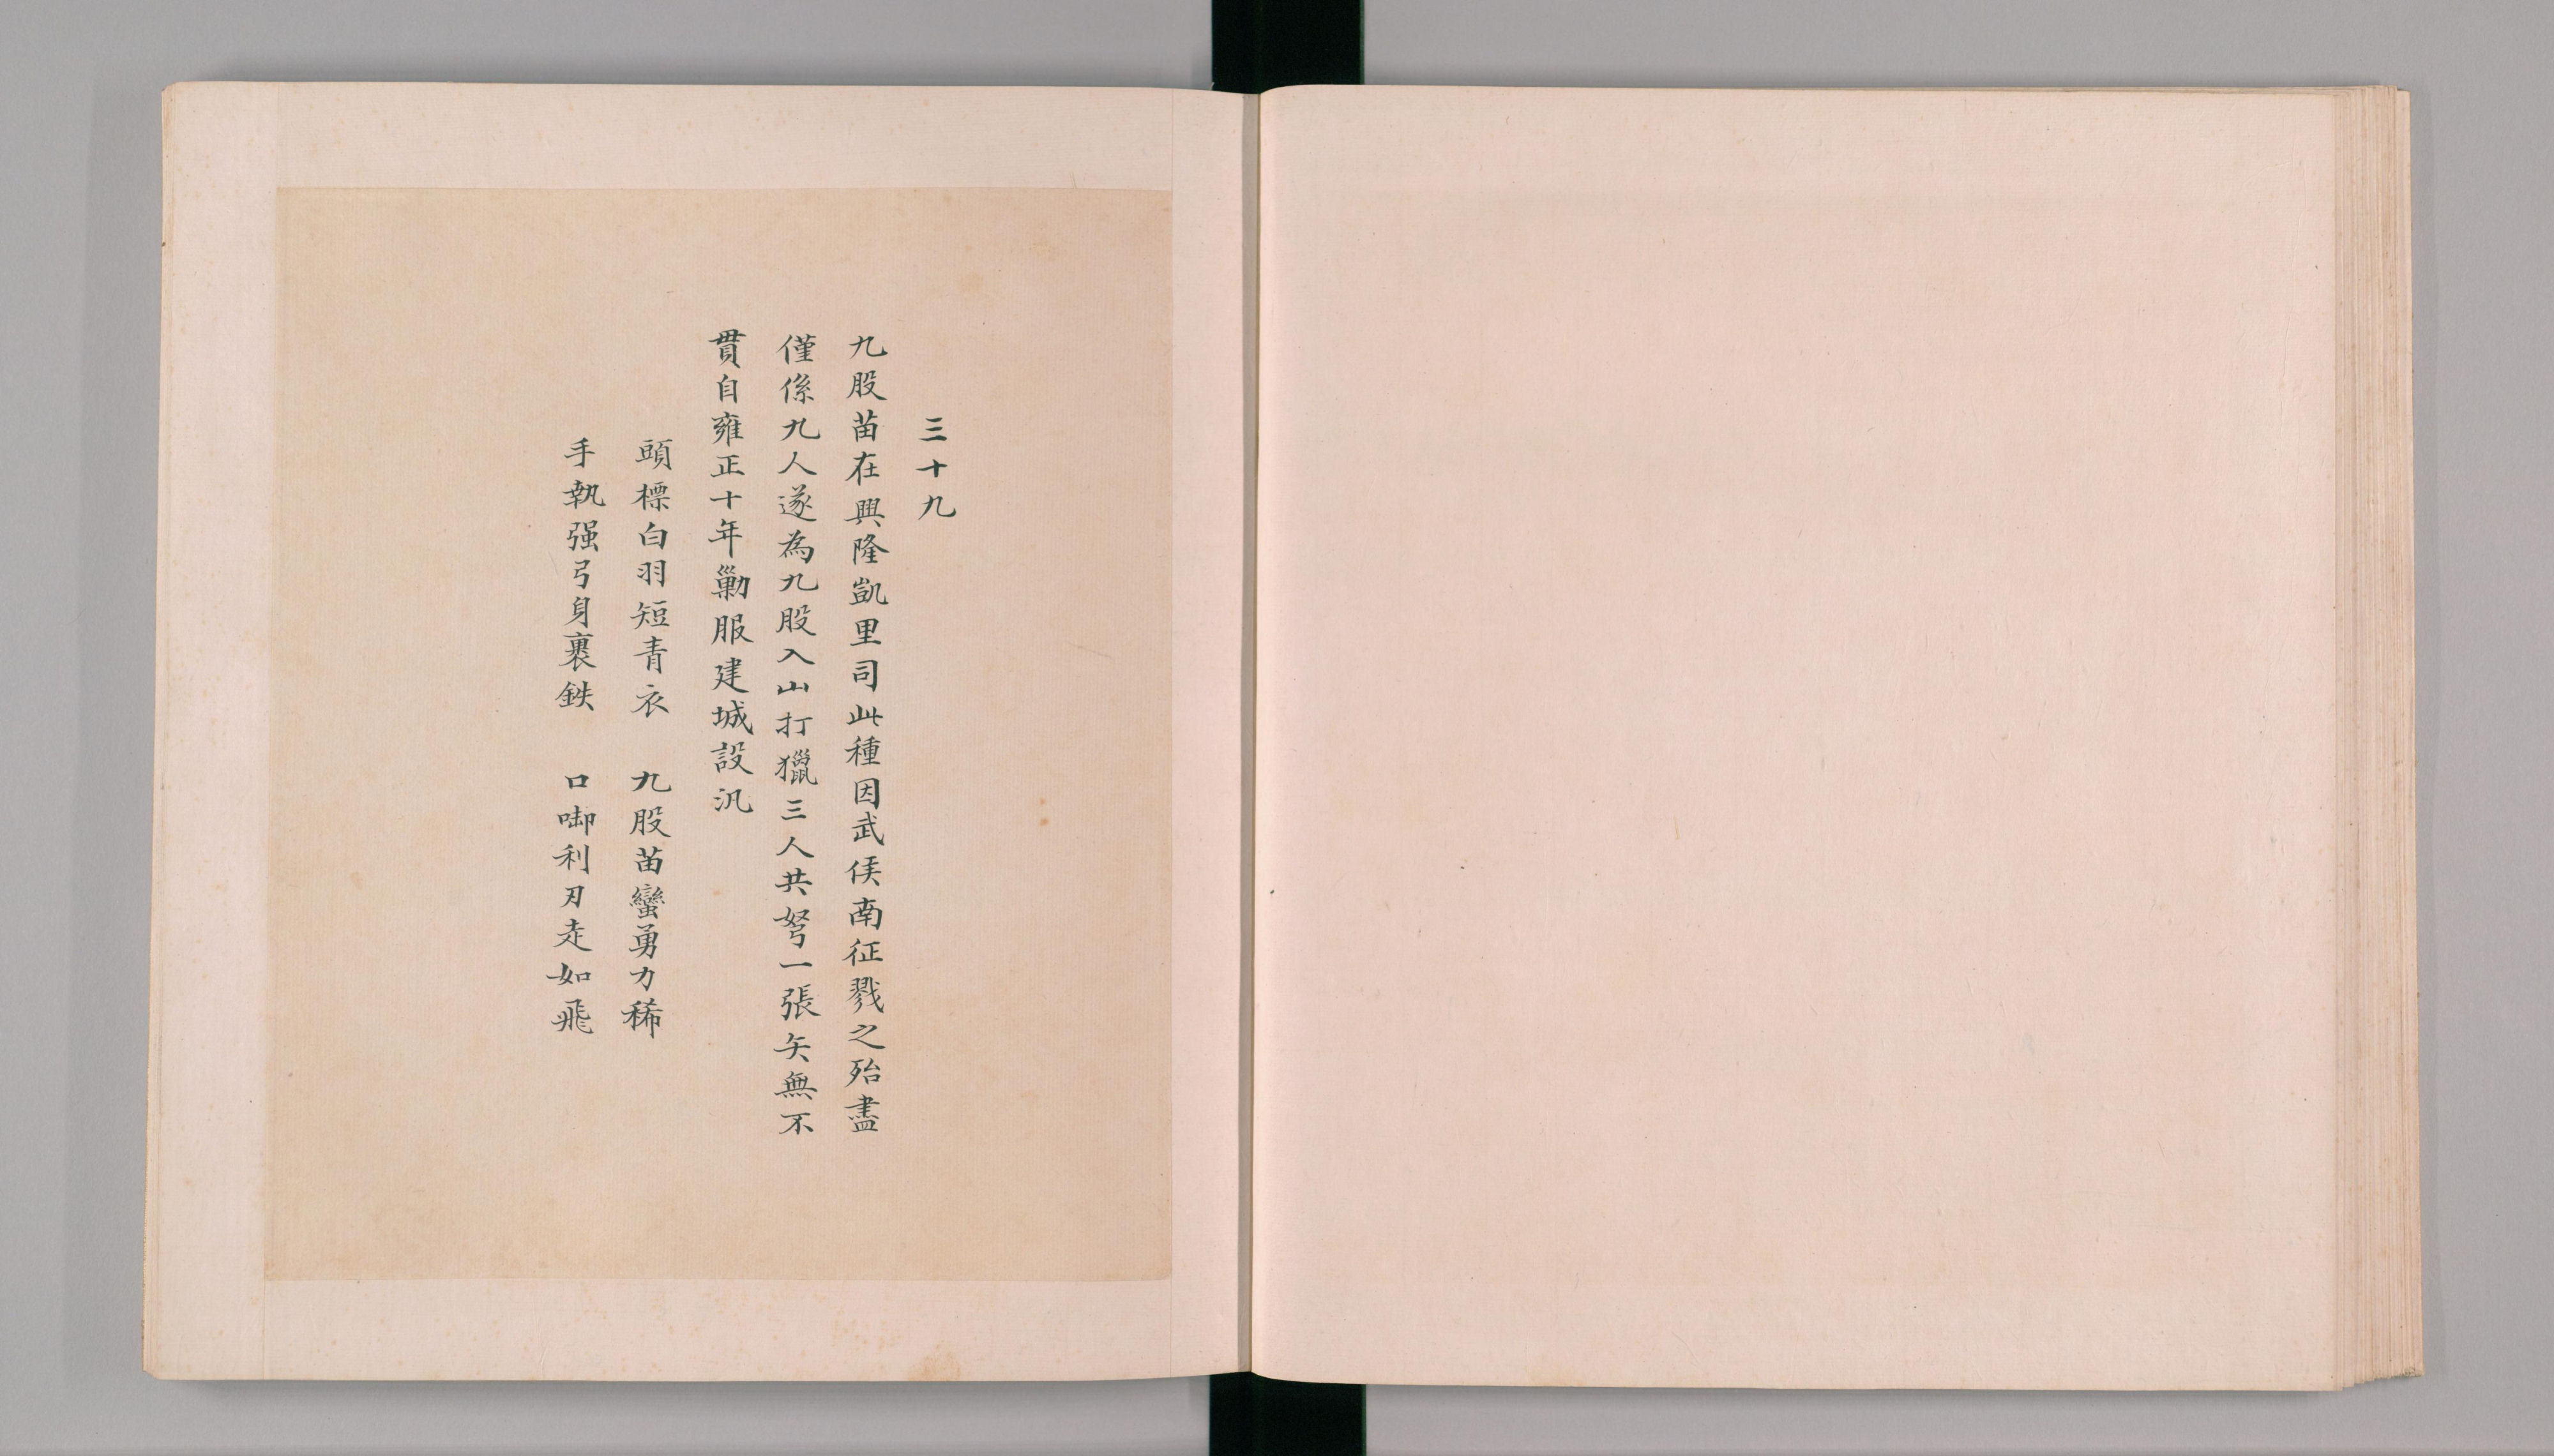 三十九
九股苗在興隆凱里司此種因武侯南征戮之殆盡
僅係九人遂為九股入山打獵三人共弩一張矢無不
貫自雍正十年勦服建城設汛
頭標白羽短青衣　九股苗蠻勇力稀
手執强弓身裹鉄　口啣利刃走如飛